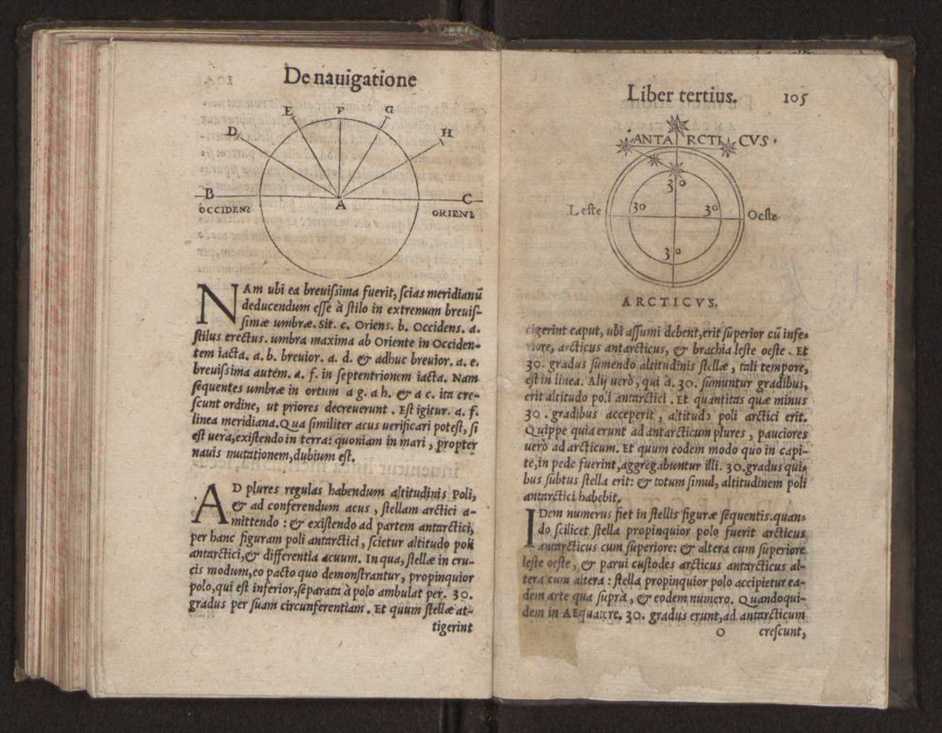 De nauigatione
E F G
D H
B A C
OCCIDENS ORIENS
NAm ubi ea breuißima fuerit, scias meridianũ
deducendum esse à stilo in extremum breuis-
simæ umbræ. Sit. c. Oriens. b. Occidens. a.
stilus erectus. umbra maxima ab Oriente in Occiden-
tem iacta. a. b. breuior. a. d. & adhuc breuior. a. e.
breuißima autem. a. f. in septentrionem iacta. Nam
sequentes umbræ in ortum a g. a h. & a c. ita cre-
scunt ordine, ut priores decreuerunt. Est igitur. a. f.
linea meridiana. Qua similiter acus uerificari potest, si
est uera, existendo in terra: quoniam in mari, propter
nauis mutationem, dubium est.
AD plures regulas habendum altitudinis Poli,
& ad conferendum acus, stellam arctici a-
mittendo: & existendo ad partem antarctici,
per hanc figuram poli antarctici, scietur altitudo poli
antarctici, & differentia acuum. In qua, stellæ in cru-
cis modum, eo pacto quo demonstrantur, propinquior
polo, qui est inferior, separata à polo ambulat per. 30.
gradus per suam circunferentiam. Et quum stellæ at-
tigerint
Liber tertius. 105
ANTARCTICVS.
30
Leste 30 30 Oeste
30
ARCTICVS.
tigerint caput, ubi assumi debent, erit superior cũ infe-
riore, arcticus antarcticus, & brachia leste oeste. Et
30. gradus sumendo altitudinis stellæ, tali tempore,
est in linea. Alij uerò, qui à. 30. sumuntur gradibus,
erit altitudo poli antarctici. Et quantitas quæ minus
30. gradibus acceperit, altitudo poli arctici erit.
Quippe quia erunt ad antarcticum plures, pauciores
uerò ad arcticum. Et quum eodem modo quo in capi-
te, in pede fuerint, aggregabuntur illi. 30. gradus qui-
bus subtus stella erit: & totum simul, altitudinem poli
antarctici habebit.
IDem numerus fiet in stellis figuræ sequentis. quan-
do scilicet stella propinquior polo fuerit arcticus
antarcticus cum superiore: & altera cum superiore
leste oeste, & parui custodes arcticus antarcticus al-
tera cum altera: stella propinquior polo accipietur ea-
dem arte qua suprà, & eodem numero. Quandoqui-
dem in AEquatore. 30. gradus erunt, ad antarcticum
O crescunt,